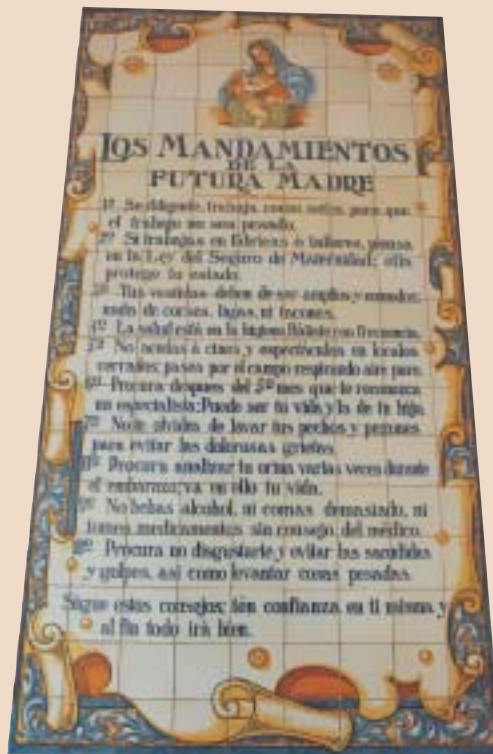 LOS MANDAMIENTOS
DE LA
FUTURA MADRE
1º Se diligente, trabaja, como antes, pero que
el trabajo no sea pesado.
2º Si trabajas en fábricas ó talleres, piensa
en la Ley del Seguro de Maternidad; ella
protege tu estado.
3º Tus vestidos deben de ser amplios y comodos;
nada de corsés, fajas, ni tacones.
4º La salud está en la higiene. Báñate con frecuencia.
5º No acudas á cines y espectáculos en locales
cerrados; pasea por el campo respirando aire puro.
6º Procura despues del 5º mes que te reconozca
un especialista: Puede ser tu vida y la de tu hijo.
7º No te olvides de lavar tus pechos y pezones
para evitar las dolorosas grietas.
8º Procura analizar tu orina varias veces durante
el embarazo; va en ello tu vida.
9º No bebas alcohol, ni comas demasiado, ni
tomes medicamentos sin consejo del médico.
10º Procura no disgustarte y evitar las sacudidas
y golpes, así como levantar cosas pesadas.
Sigue estos consejos; ten confianza en ti misma y
al fin todo irá bien.